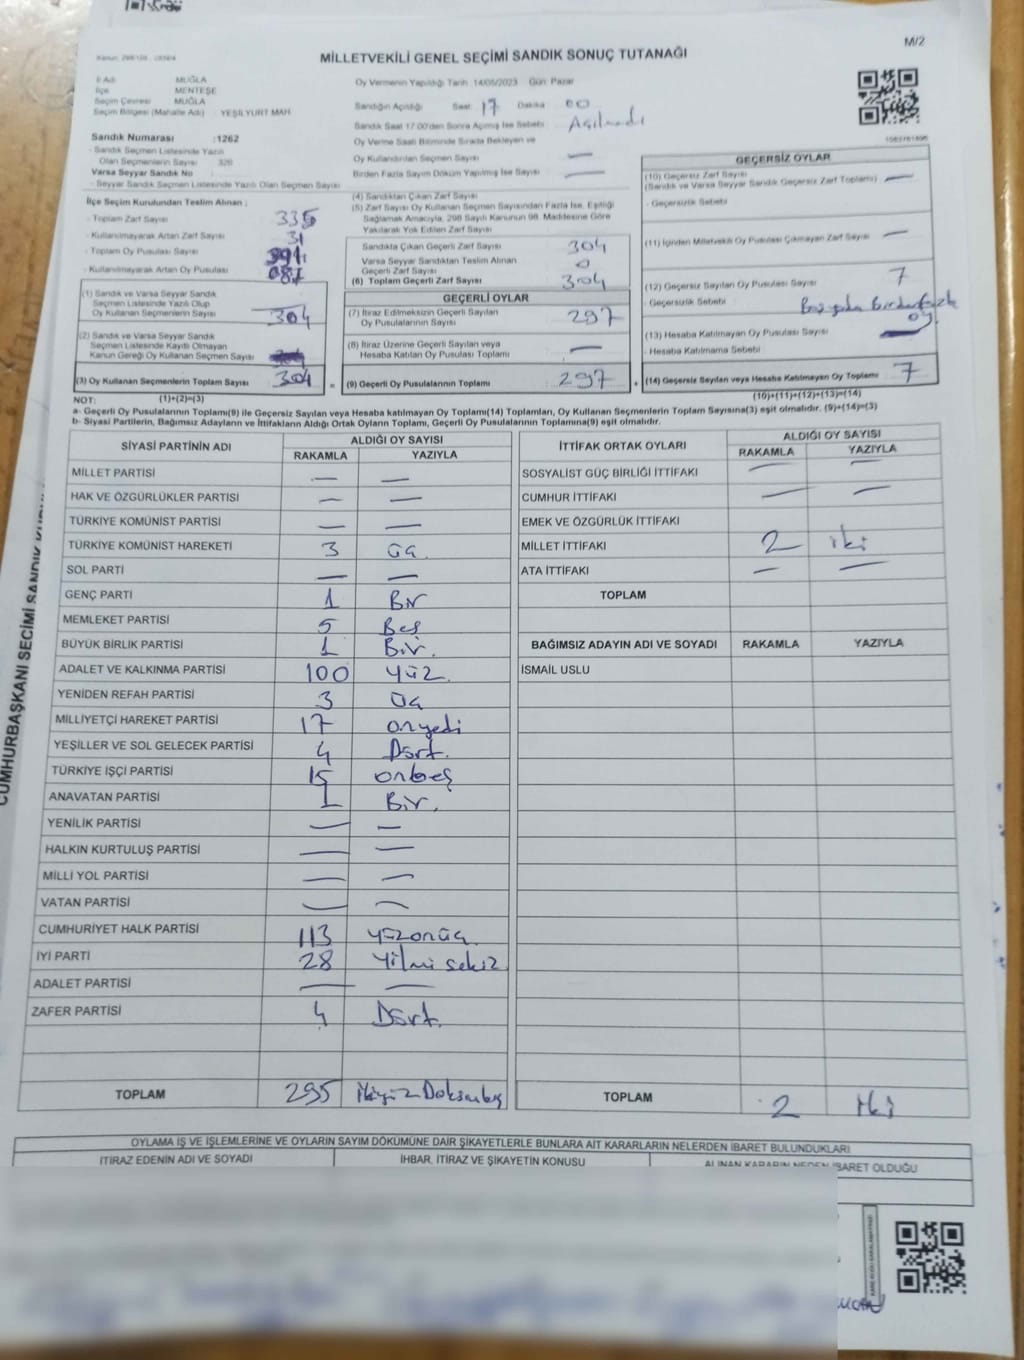 M/2
MİLLETVEKİLİ GENEL SEÇİMİ SANDIK SONUÇ TUTANAĞI
İl Adı : MUĞLA
İlçe : MENTEŞE
Seçim Çevresi : MUĞLA
Seçim Bölgesi (Mahalle Adı) : YEŞİLYURT MAH.
Sandık Numarası :1262
- Sandık Seçmen Listesinde Yazılı
Olan Seçmenlerin Sayısı : 326
Varsa Seyyar Sandık No :
- Seyyar Sandık Seçmen Listesinde Yazılı Olan Seçmen Sayısı
Oy Vermenin Yapıldığı Tarih 14/05/2023 Gün: Pazar
Sandığın Açıldığı Saat 17 Dakika 00
Sandık Saat 17:00'den Sonra Açılmış İse Sebebi: Açılmadı
Oy Verme Saati Bitiminde Sırada Bekleyen ve
Oy Kullandırılan Seçmen Sayısı —
Birden Fazla Sayım Döküm Yapılmış İse Sayısı —
İlçe Seçim Kurulundan Teslim Alınan ;
- Toplam Zarf Sayısı 335
- Kullanılmayarak Artan Zarf Sayısı 31
- Toplam Oy Pusulası Sayısı
- Kullanılmayarak Artan Oy Pusulası
(1) Sandık ve Varsa Seyyar Sandık
Seçmen Listesinde Yazılı Olup
Oy Kullanan Seçmenlerin Sayısı 304
(2) Sandık ve Varsa Seyyar Sandık
Seçmen Listesinde Kayıtlı Olmayan
Kanun Gereği Oy Kullanan Seçmen Sayısı
(3) Oy Kullanan Seçmenlerin Toplam Sayısı 304
(4) Sandıktan Çıkan Zarf Sayısı
(5) Zarf Sayısı Oy Kullanan Seçmen Sayısından Fazla İse, Eşitliği
Sağlamak Amacıyla, 298 Sayılı Kanunun 98. Maddesine Göre
Yakılarak Yok Edilen Zarf Sayısı
Sandıkta Çıkan Geçerli Zarf Sayısı 304
Varsa Seyyar Sandıktan Teslim Alınan
Geçerli Zarf Sayısı 0
(6) Toplam Geçerli Zarf Sayısı 304
GEÇERLİ OYLAR
(7) İtiraz Edilmeksizin Geçerli Sayılan
Oy Pusulalarının Sayısı 297
(8) İtiraz Üzerine Geçerli Sayılan veya
Hesaba Katılan Oy Pusulası Toplamı —
= (9) Geçerli Oy Pusulalarının Toplamı 297 +
GEÇERSİZ OYLAR
(10) Geçersiz Zarf Sayısı
(Sandık ve Varsa Seyyar Sandık Geçersiz Zarf Toplamı) —
- Geçersizlik Sebebi
(11) İçinden Milletvekili Oy Pusulası Çıkmayan Zarf Sayısı —
(12) Geçersiz Sayılan Oy Pusulası Sayısı 7
- Geçersizlik Sebebi
oy.
(13) Hesaba Katılmayan Oy Pusulası Sayısı
- Hesaba Katılmama Sebebi
(14) Geçersiz Sayılan veya Hesaba Katılmayan Oy Toplamı 7
NOT: (1)+(2)=(3) (10)+(11)+(12)+(13)=(14)
a- Geçerli Oy Pusulalarının Toplamı(9) ile Geçersiz Sayılan veya Hesaba katılmayan Oy Toplamı(14) Toplamları, Oy Kullanan Seçmenlerin Toplam Sayısına(3) eşit olmalıdır. (9)+(14)=(3)
b- Siyasi Partilerin, Bağımsız Adayların ve İttifakların Aldığı Ortak Oyların Toplamı, Geçerli Oy Pusulalarının Toplamına(9) eşit olmalıdır.
SİYASİ PARTİNİN ADI ALDIĞI OY SAYISI
RAKAMLA YAZIYLA
MİLLET PARTİSİ — —
HAK VE ÖZGÜRLÜKLER PARTİSİ — —
TÜRKİYE KOMÜNİST PARTİSİ — —
TÜRKİYE KOMÜNİST HAREKETİ 3 üç
SOL PARTİ — —
GENÇ PARTİ 1 Bir
MEMLEKET PARTİSİ 5 Beş
BÜYÜK BİRLİK PARTİSİ 1 Bir.
ADALET VE KALKINMA PARTİSİ 100 Yüz.
YENİDEN REFAH PARTİSİ 3 üç
MİLLİYETÇİ HAREKET PARTİSİ 17 onyedi
YEŞİLLER VE SOL GELECEK PARTİSİ 4 Dört.
TÜRKİYE İŞÇİ PARTİSİ 15 onbeş
ANAVATAN PARTİSİ 1 Bir.
YENİLİK PARTİSİ — —
HALKIN KURTULUŞ PARTİSİ — —
MİLLİ YOL PARTİSİ — —
VATAN PARTİSİ — —
CUMHURİYET HALK PARTİSİ 113 yüzonüç
İYİ PARTİ 28 Yirmi sekiz
ADALET PARTİSİ — —
ZAFER PARTİSİ 4 Dört.
TOPLAM 295 ikiyüz Doksanbeş
İTTİFAK ORTAK OYLARI ALDIĞI OY SAYISI
RAKAMLA YAZIYLA
SOSYALİST GÜÇ BİRLİĞİ İTTİFAKI — —
CUMHUR İTTİFAKI — —
EMEK VE ÖZGÜRLÜK İTTİFAKI
MİLLET İTTİFAKI 2 iki
ATA İTTİFAKI — —
TOPLAM
BAĞIMSIZ ADAYIN ADI VE SOYADI RAKAMLA YAZIYLA
İSMAİL USLU
TOPLAM 2 iki
OYLAMA İŞ VE İŞLEMLERİNE VE OYLARIN SAYIM DÖKÜMÜNE DAİR ŞİKAYETLERLE BUNLARA AİT KARARLARIN NELERDEN İBARET BULUNDUKLARI
İTİRAZ EDENİN ADI VE SOYADI İHBAR, İTİRAZ VE ŞİKAYETİN KONUSU ALINAN KARARIN NEDEN İBARET OLDUĞU
CUMHURBAŞKANI SEÇİMİ SANDIK